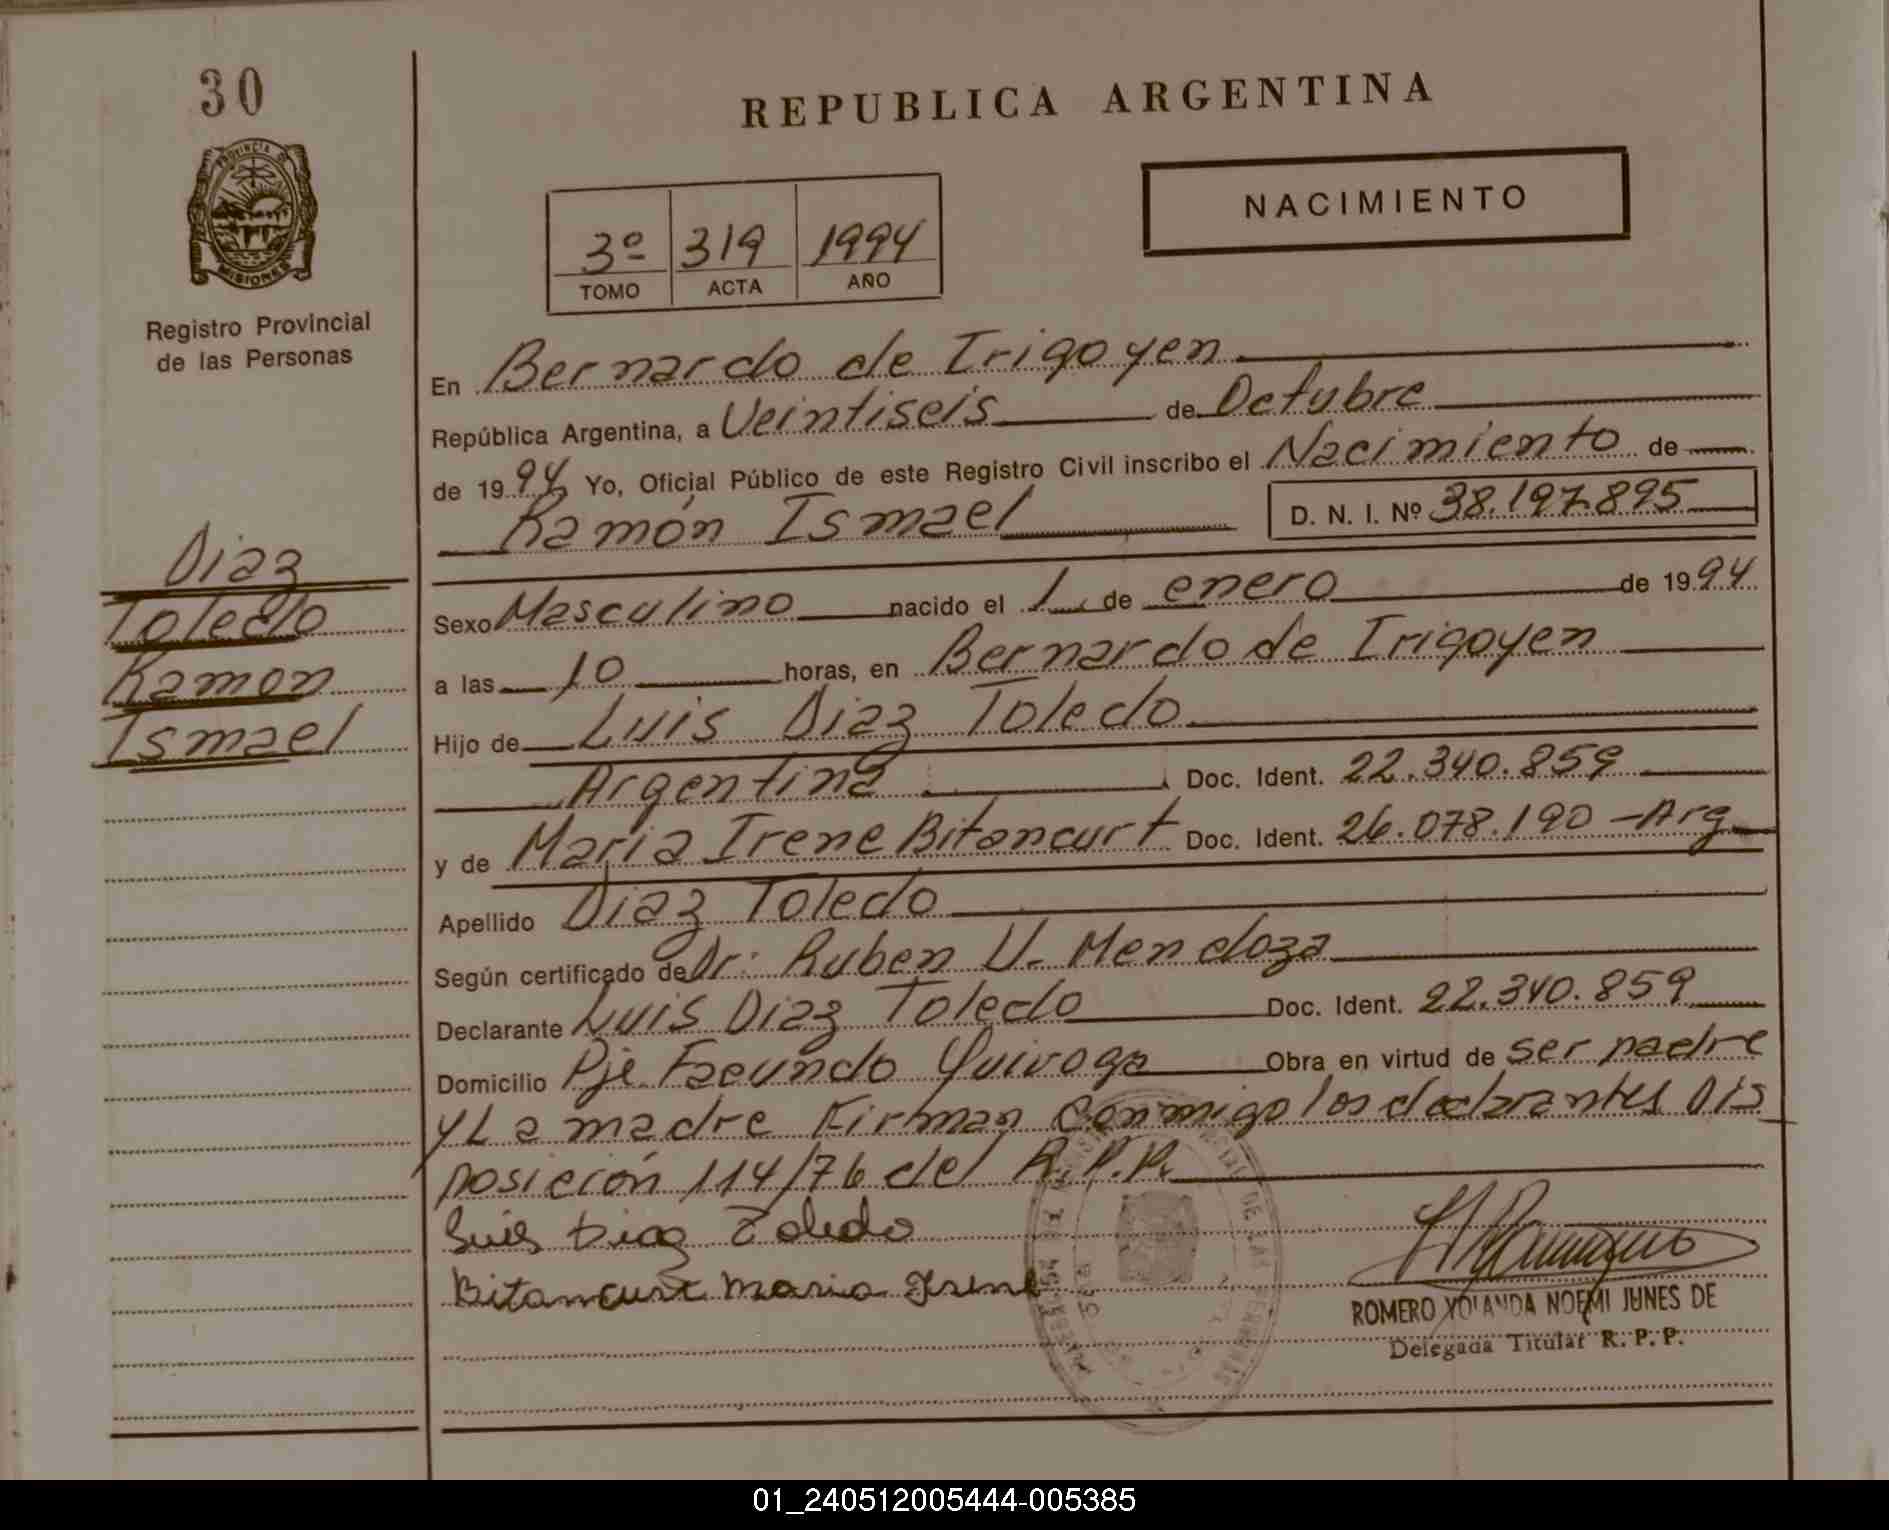 30
REPUBLICA ARGENTINA
PROVINCIA DE
MISIONES
NACIMIENTO
3º 319 1994
TOMO ACTA AÑO
Registro Provincial
de las Personas
En Bernardo de Irigoyen
República Argentina, a Veintiseis de Octubre
de 1994 Yo, Oficial Público de este Registro Civil inscribo el Nacimiento de
Ramón Ismael D. N. I. Nº 38.197.895
Diaz
Toledo
Ramon
Ismael
Sexo Masculino nacido el 1 de enero de 1994
a las 10 horas, en Bernardo de Irigoyen
Hijo de Luis Diaz Toledo
Argentina Doc. Ident. 22.340.859
y de Maria Irene Bitancurt Doc. Ident. 26.078.190 - Arg
Apellido Diaz Toledo
Según certificado de Dr: Ruben V. Mendoza
Declarante Luis Diaz Toledo Doc. Ident. 22.340.859
Domicilio Pje. Facundo Quiroga Obra en virtud de ser padre
y La madre Firman conmigo los declarantes Dis
posición 114/76 del R.P.P.
Luis Diaz Toledo
Bitancurt Maria Irene
ROMERO YOLANDA NOEMI JUNES DE
Delegada Titular R. P. P.
01_240512005444-005385